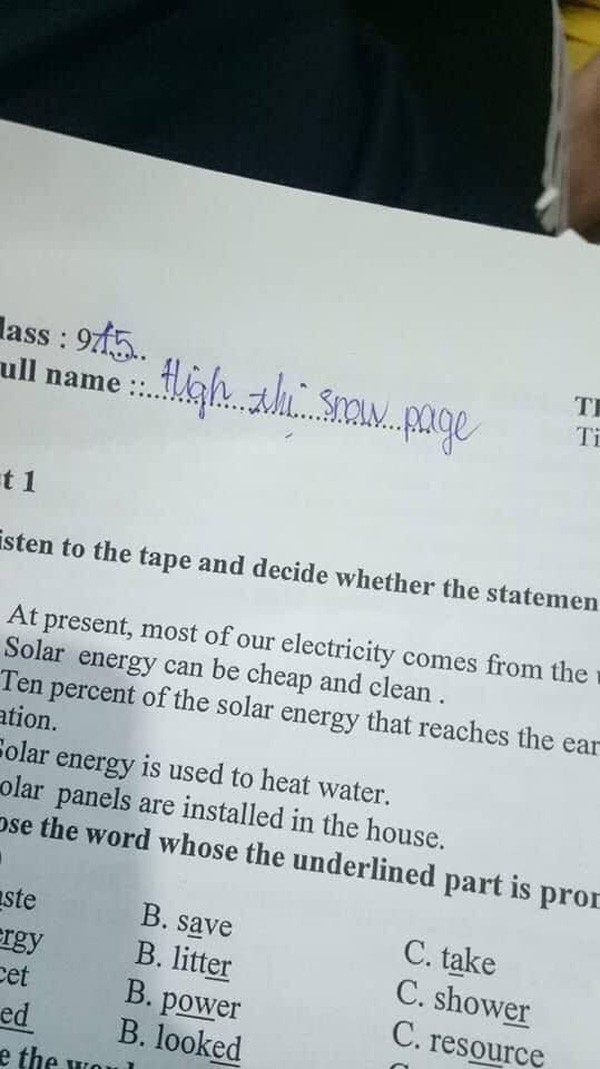 lass : 9A5
ull name : High thị snow page
TI
Ti
t 1
isten to the tape and decide whether the statemen
At present, most of our electricity comes from the
Solar energy can be cheap and clean .
Ten percent of the solar energy that reaches the ear
ation.
Solar energy is used to heat water.
olar panels are installed in the house.
ose the word whose the underlined part is pron
aste B. save C. take
ergy B. litter C. shower
cet B. power C. resource
ed B. looked
e the word